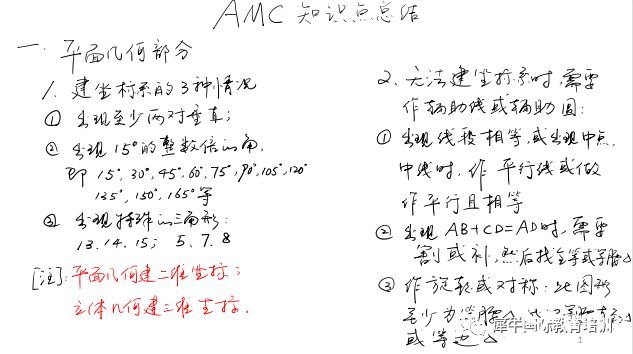 AMC 知识点总结
一、平面几何部分
1. 建坐标系的3种情况
① 出现至少两对垂直；
② 出现15°的整数倍的角，
即 15°, 30°, 45°, 60°, 75°, 90°, 105°, 120°
135°, 150°, 165°等
③ 出现特殊的三角形：
13. 14. 15； 5. 7. 8
[注]：平面几何建二维坐标；
立体几何建三维坐标.
2. 无法建坐标系时，需要
作辅助线或辅助圆：
① 出现线段相等，或出现中点，
中线时，作平行线或做
作平行且相等
② 出现 AB+CD=AD时，需要
割或补，然后找全等或等腰△
③ 作旋转或对称：此图形
至少为等腰△
或等边△
犀牛国际教育培训
1